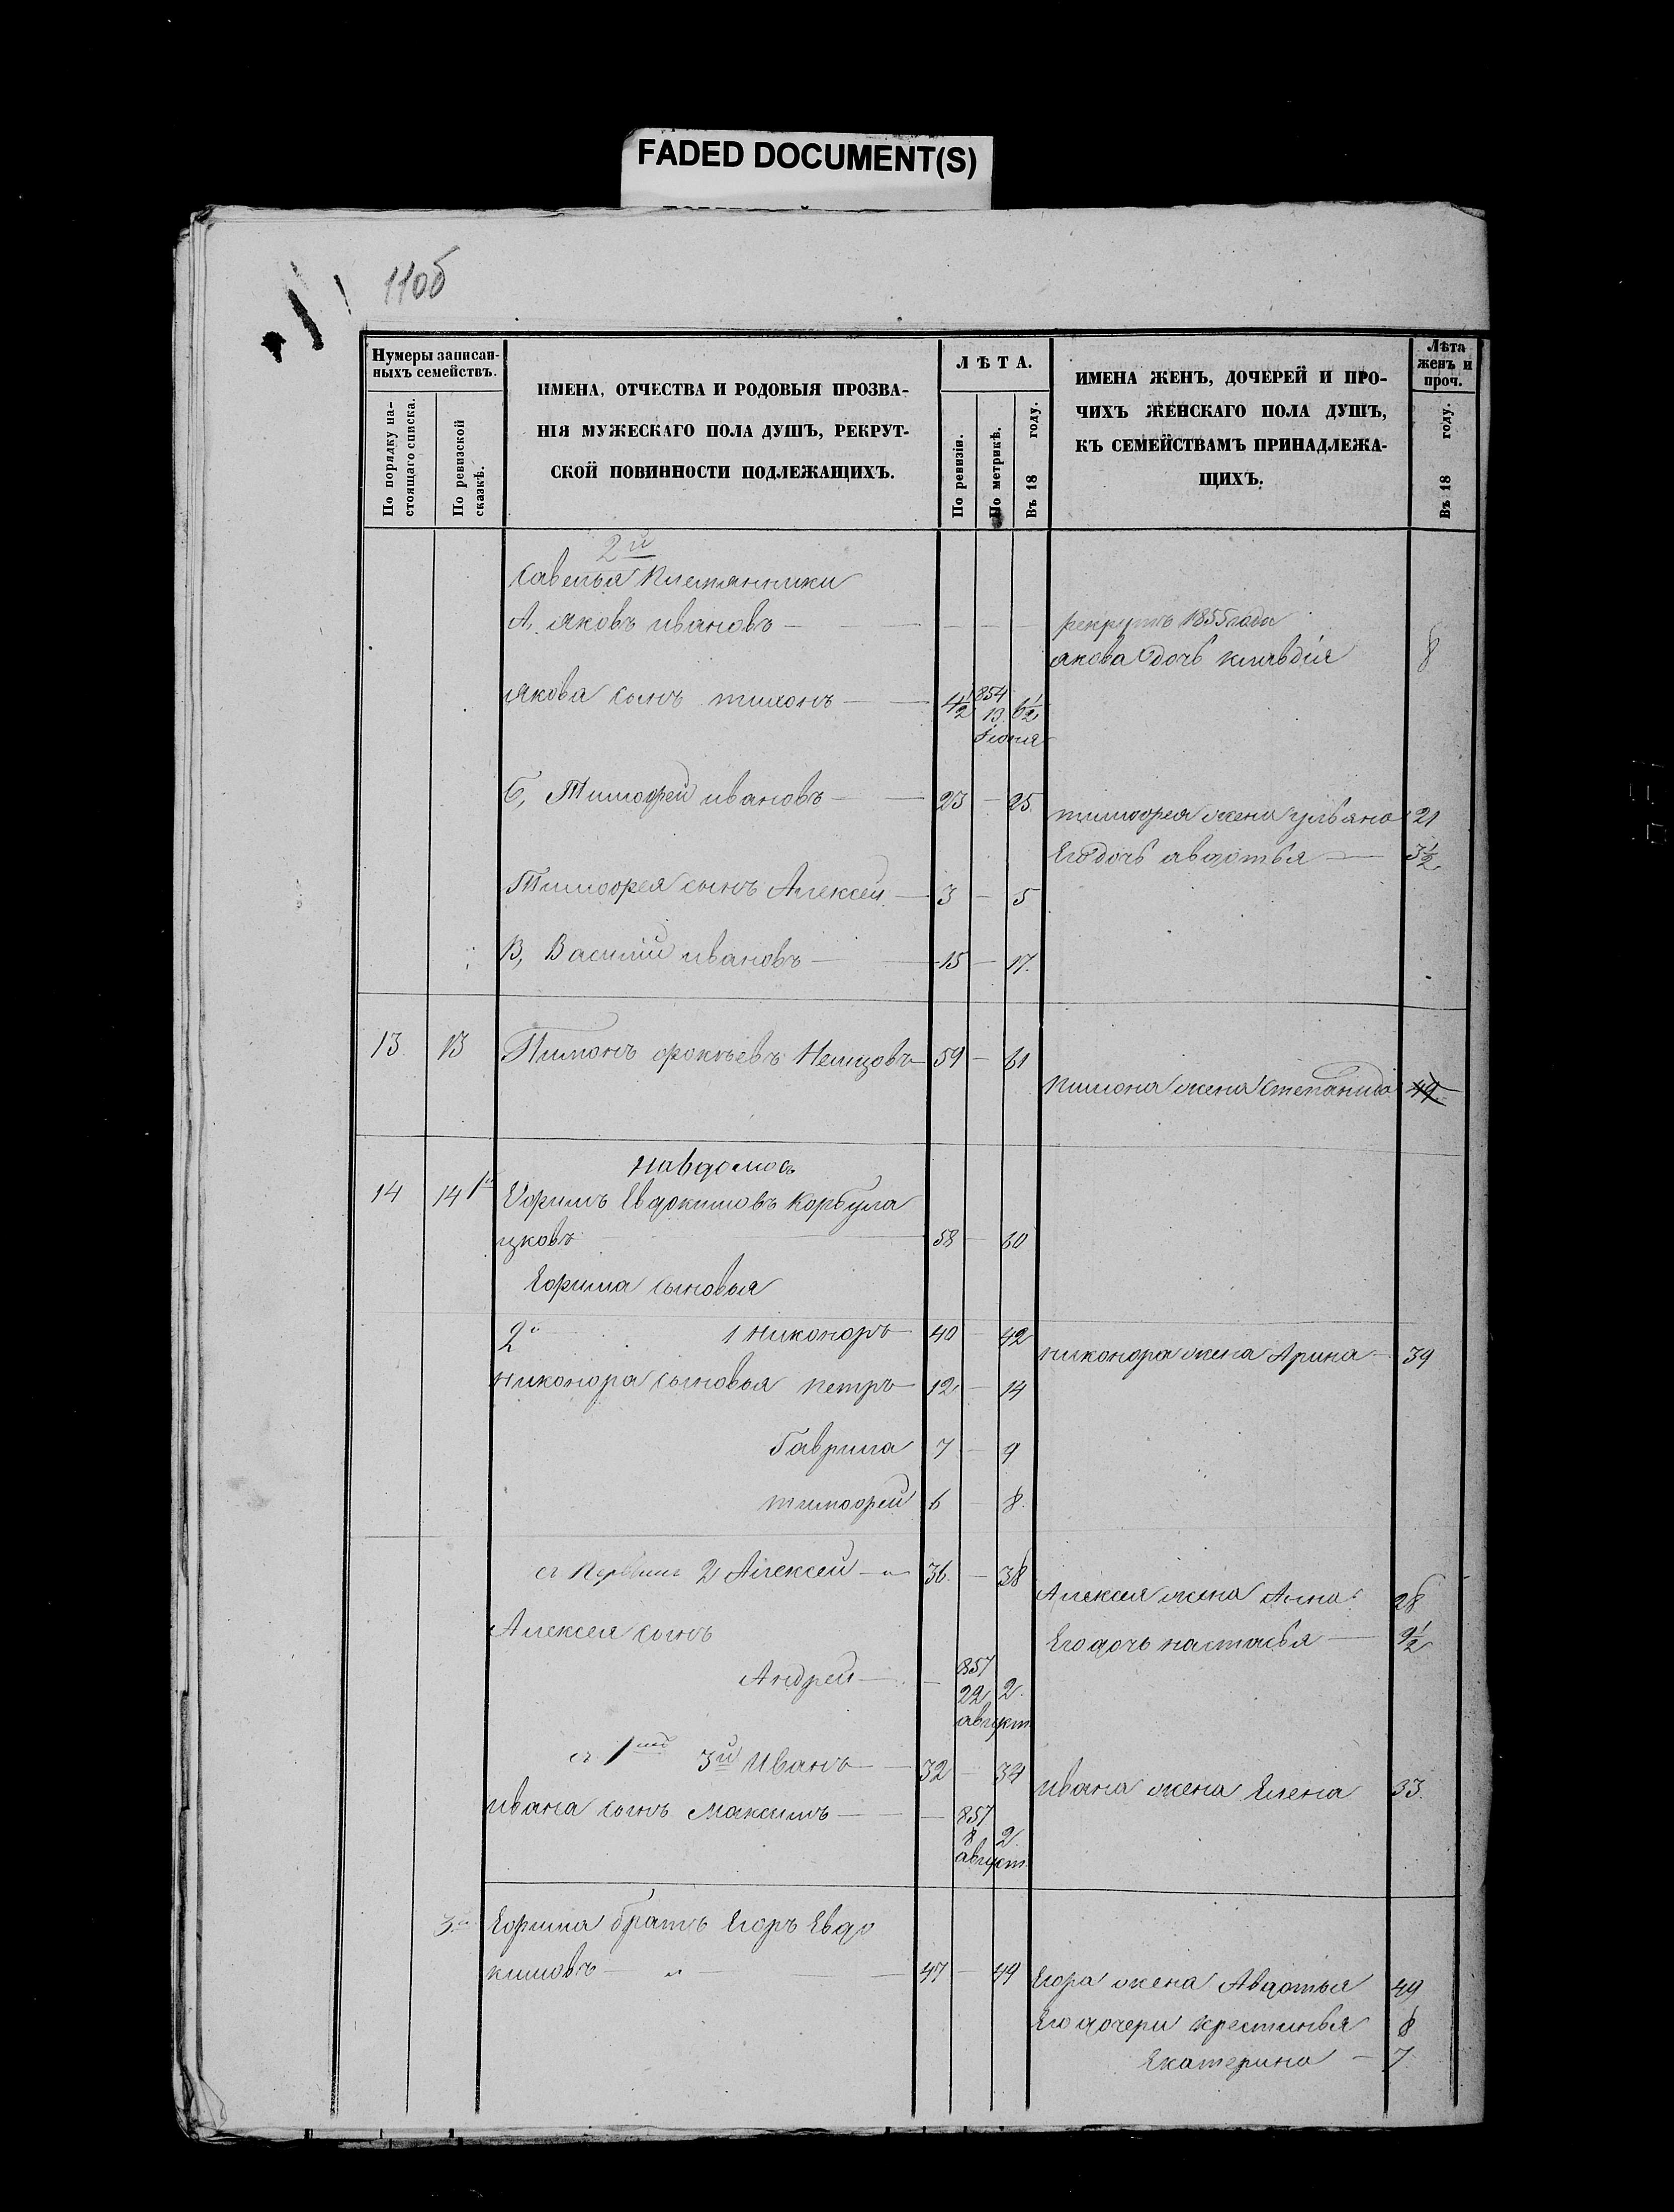 FADED DOCUMENT(S)
110б
Нумеры записан-
ныхъ семействъ.
По порядку на-
стоящаго списка.
По ревизской
сказкѣ.
ИМЕНА, ОТЧЕСТВА И РОДОВЫЯ ПРОЗВА-
НІЯ МУЖЕСКАГО ПОЛА ДУШЪ, РЕКРУТ-
СКОЙ ПОВИННОСТИ ПОДЛЕЖАЩИХЪ.
ЛѢТА.
По ревизіи.
По метрикѣ.
Въ 18 году.
ИМЕНА ЖЕНЪ, ДОЧЕРЕЙ И ПРО-
ЧИХЪ ЖЕНСКАГО ПОЛА ДУШЪ,
КЪ СЕМЕЙСТВАМЪ ПРИНАДЛЕЖА-
ЩИХЪ.
Лѣта
женъ и
проч.
Въ 18 году.
2й
Савелья племянники
А, яковъ ивановъ — — — —
рекрутъ 1855 года
якова дочь клавдія 8
якова сынъ тихонъ — 4½ 854 6½
19
іюня
Б, Тимофей ивановъ — 23 — 25
тимофея жена ульяна 21
Его дочь авдотья — 3½
Тимофея сынъ Алексей — 3 — 5
В, Василий ивановъ — 15 — 17.
13 13 Пимонъ фокъевъ Немцовъ 59 — 61
пимона жена Степанида 49
14 14 1й Ефимъ Евдокимовъ Корбула
цковъ — 58 — 60
Ефима сыновья
2й 1 никоноръ 40 — 42
никонора жена Арина — 39
никонора сыновья петръ 12 — 14
Гаврила 7 — 9
тимофей 6 — 8.
съ первымъ 2 Алексей — 36. — 38
Алексея жена Анна 28
Алексея сынъ
Его дочь настасья — 9½
Андрей — — 857
22 2.
август.
съ 1мъ 3й Иванъ — 32 — 34
ивана жена Елена 33.
ивана сынъ Максимъ — — 857
8 2.
август.
3й Ефима братъ Егоръ Евдо
кимовъ — 47 — 49
Егора жена Авдотья 49
Его дочери крестинья 8
Екатерина — 7